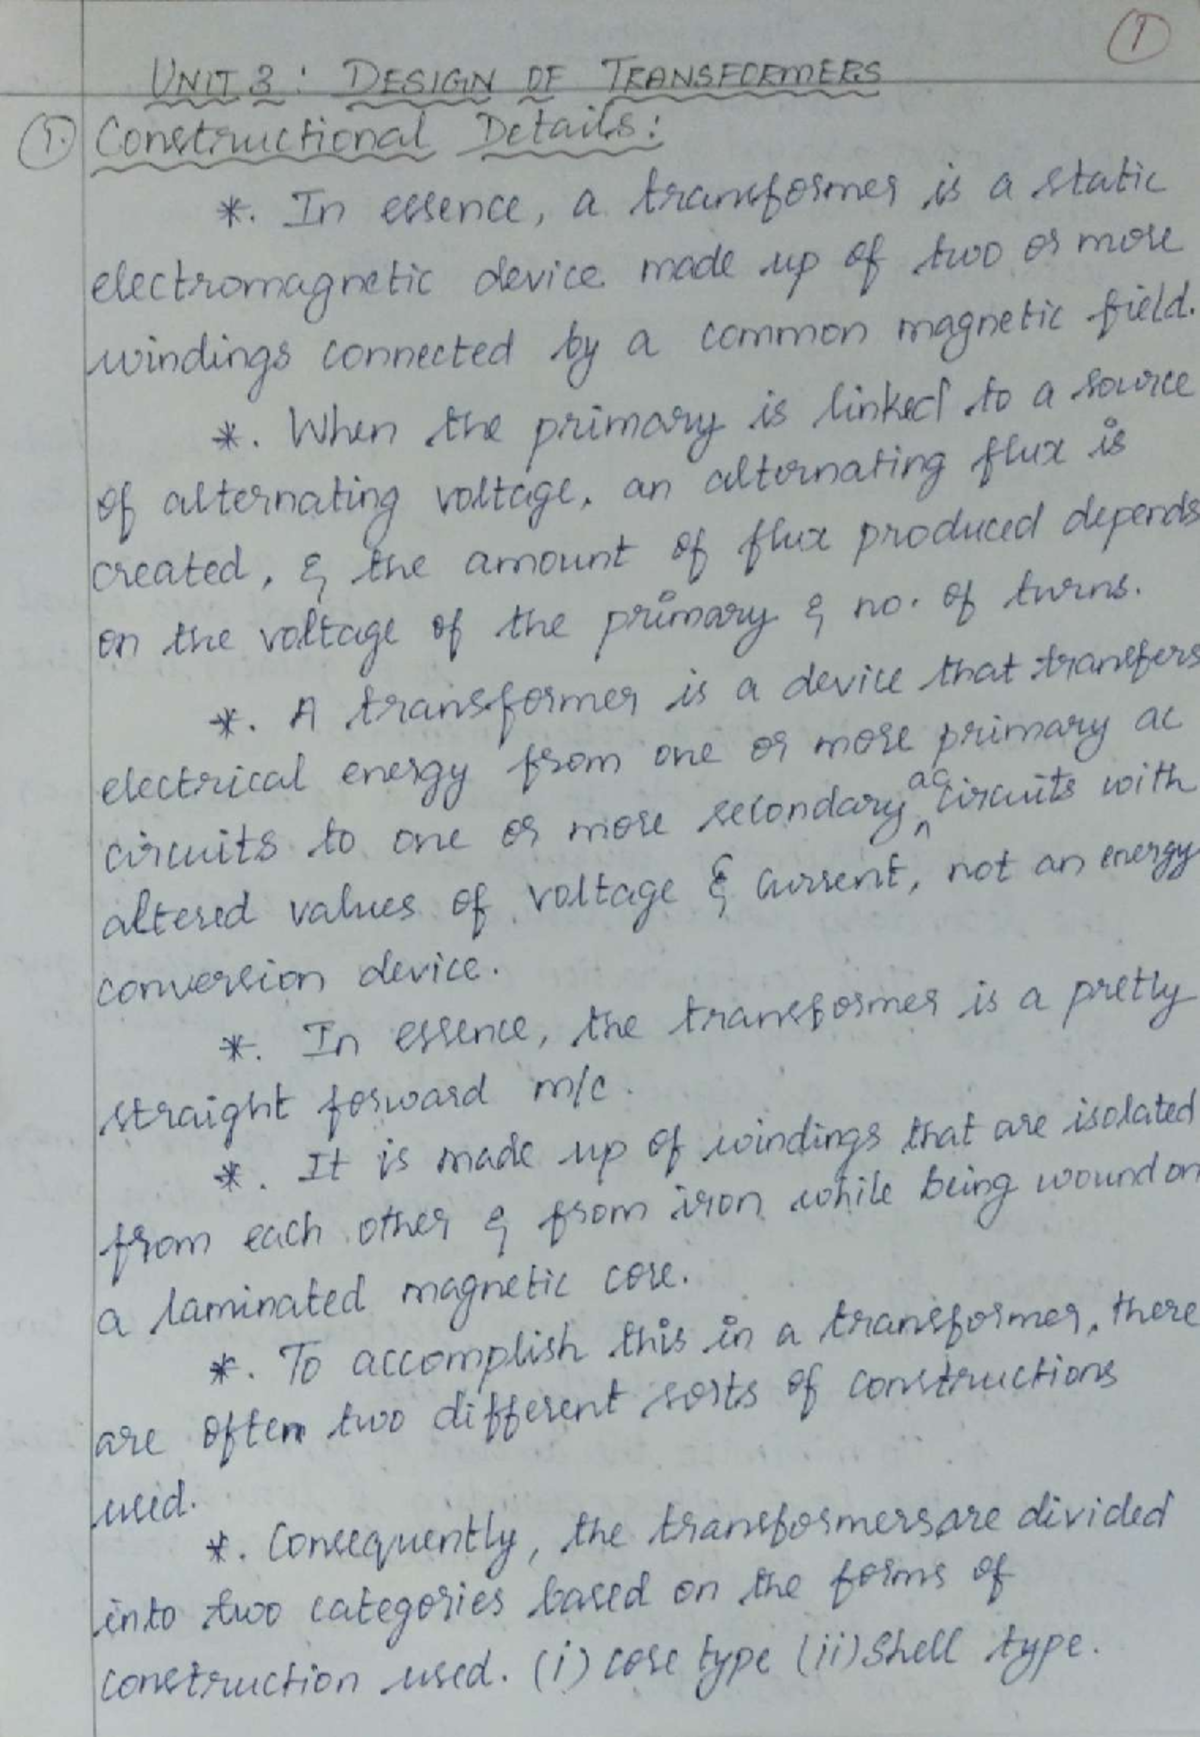 1
UNIT 3 : DESIGN OF TRANSFORMERS
1. Constructional Details:
*. In essence, a transformer is a static
electromagnetic device made up of two or more
windings connected by a common magnetic field.
*. When the primary is linked to a source
of alternating voltage, an alternating flux is
created, & the amount of flux produced depends
on the voltage of the primary & no. of turns.
*. A transformer is a device that transfers
electrical energy from one or more primary ac
circuits to one or more secondary ac circuits with
altered values of voltage & current, not an energy
conversion device.
*. In essence, the transformer is a pretty
straight forward m/c.
*. It is made up of windings that are isolated
from each other & from iron while being wound on
a laminated magnetic core.
*. To accomplish this in a transformer, there
are often two different sorts of constructions
used.
*. Consequently, the transformers are divided
into two categories based on the forms of
construction used. (i) core type (ii) Shell type.